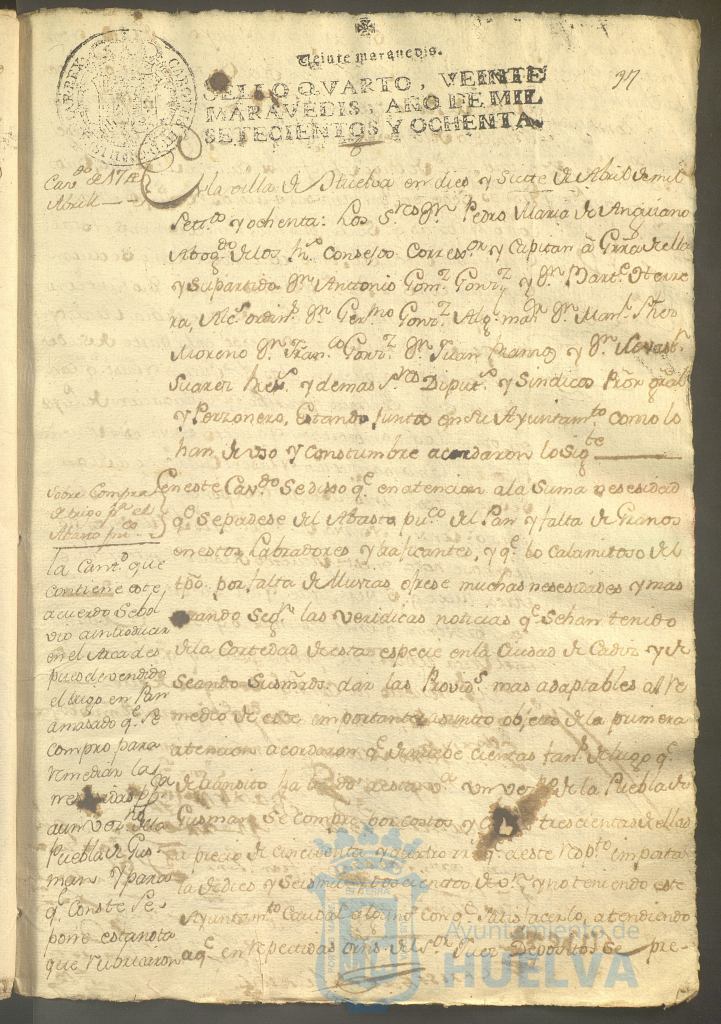 Veinte maravedis.
SELLO QVARTO, VEINTE
MARAVEDIS, AÑO DE MIL
SETECIENTOS Y OCHENTA.
97
Cav.do de 17 de
Abril
En la villa de Huelva en dies y Siete de Abril de mil
Setez.os y ochenta: Los S.res D.n Pedro Maria de Anguiano
Abog.do de los R.s Consejos Correg.or y Capitan a Grra de ella
y su partido D.n Antonio Gom.z Gonz.z y D.n Bart.e Herre
ra, Alc.s ordin.s D.n Ger.mo Gonz.z Alg. ma.r D.n Man.l
Moreno D.n Fran.co Gonz.z D.n Juan y D.n
Suarez y demas S.res Diput.s y Sindicos Pror gral
y Perzonero, Estando Juntos en su Ayuntam.to como lo
han de uso y constumbre acordaron lo Sig.te
Sobre Compra
de trigo p.a el
Abasto pu.co
En este Cav.do Se dijo q.e en atencion a la Suma nesesidad
q.e se padese del Abasto pu.co del Pan y falta de Granos
en estos Labradores y traficantes, y q.e lo calamitoso del
tpo. por falta de lluvias ofrese muchas nesesidades y mas
quando Seg.n las veridicas noticias q.e se han tenido
de la Cortedad de esta especie en la Ciudad de Cadiz y de
Seando Sus mrds. dar las Provid.s mas adaptables al re
medio de este importante asunto objeto de la primera
atencion acordaron q.e de nuebe cientas fan.s de trigo q.e
de transito ha traido a esta v.a un vez.o de la Puebla de
Gusman se compre por costos y trescientas de ellas
a precio de cincuenta y quatro r.s q.e a este resp.to importa
la de dies y Seis mil y doscientos r.s v.n y no teniendo este
Ayuntam.to Caudal alguno con q.e aserlo, atendiendo
a q.e en repectidas orns. del S.or Juez Depositos se pre-
la Cant.d que
contiene este
acuerdo Sebol
vio a introducir
en el Arca des
pues de vendido
el trigo en Pan
amasado q.e se
compro para
remediar las
nesesidades
a un vez.o de la
Puebla de Gus
man. y para
q.e conste se
pone esta nota
que rubricaron
Ayuntamiento de
HUELVA